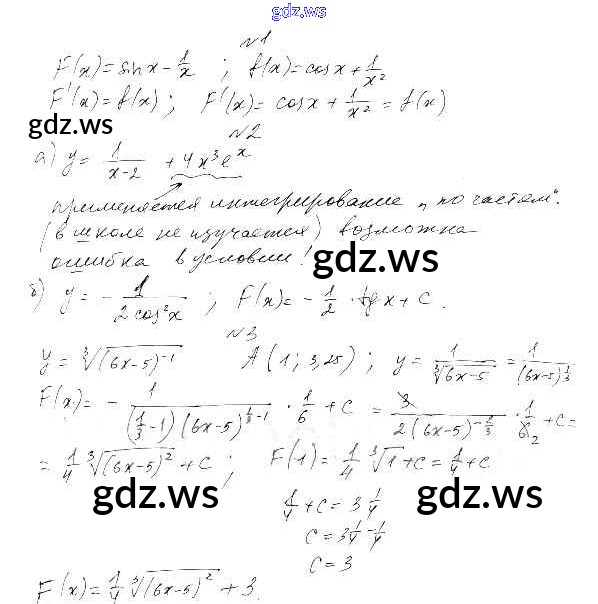 gdz.ws
№1
F(x)=sinx-1/x ; f(x)=cosx+1/x²
F'(x)=f(x); F'(x)=cosx+1/x²=f(x)
gdz.ws
№2
а) y=1/(x-2) +4x³eˣ
применяется интегрирование „по частям“.
(в школе не изучается) возможна
ошибка в условии!
gdz.ws
б) y=-1/(2cos²x) ; F(x)=-1/2·tgx+C.
№3
y=∛((6x-5)⁻¹) A(1; 3,25); y=1/∛(6x-5)=1/(6x-5)^(1/3)
F(x)=-1/((1/3-1)(6x-5)^(1/3-1))·1/6+C=3/(2(6x-5)^(-2/3))·1/6₂+C=
=1/4∛((6x-5)²)+C; F(1)=1/4∛1+C=1/4+C
gdz.ws gdz.ws
1/4+C=3 1/4
C=3 1/4-1/4
C=3
F(x)=1/4∛((6x-5)²)+3.
gdz.ws gdz.ws